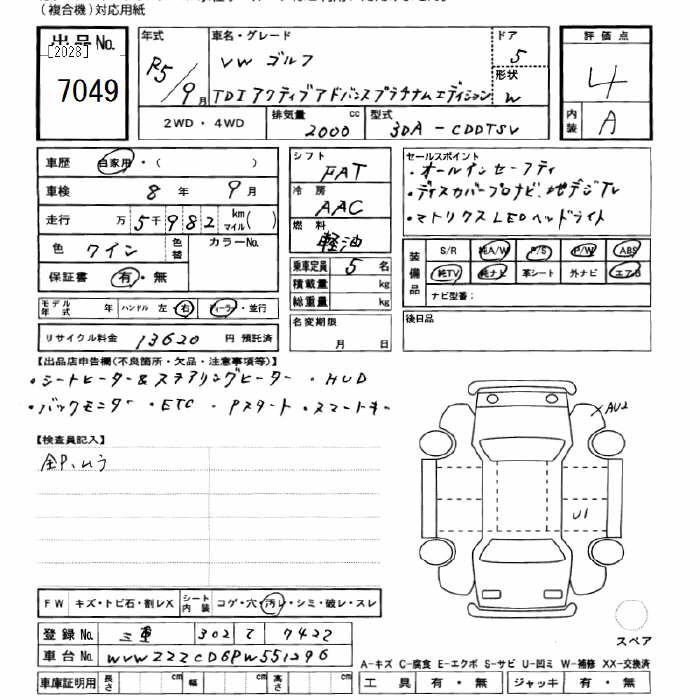 （複合機）対応用紙
出品No.
[2028]
7049
年式
R5/9月
車名・グレード
VW ゴルフ
TDI アクティブアドバンスプラチナムエディション
ドア
5
形状
W
評価点
4
内装
A
2WD・4WD
排気量
2000 cc
型式
3DA-CDDTSV
車歴 自家用・（ ）
車検 8年 9月
走行 万 5千982 km マイル( )
色 ワイン 色替 カラーNo.
保証書 有・無
モデル年式 年 ハンドル 左 右 ディーラー・並行
リサイクル料金 13620 円 預託済
シフト
FAT
冷房
AAC
燃料
軽油
乗車定員 5 名
積載量 kg
総重量 kg
名変期限
月 日
セールスポイント
・オールインセーフティ
・ディスカバープロナビ、地デジTV
・マトリクスLEDヘッドライト
装備品
S/R 純A/W P/S P/W ABS
純TV 純ナビ 革シート 外ナビ エアB
ナビ型番：
後日品
【出品店申告欄（不良箇所・欠品・注意事項等）】
・シートヒーター&ステアリングヒーター ・HUD
・バックモニター ・ETC ・Pスタート ・スマートキー
【検査員記入】
全P、ムラ
AU2
U1
スペア
FW キズ・トビ石・割レX シート内装 コゲ・穴・汚レ・シミ・破レ・スレ
登録No. 三重 302 て 7422
車台No. WVWZZZCD6PW551296
車庫証明用 長さ cm 幅 cm 高さ cm
A-キズ C-腐食 E-エクボ S-サビ U-凹ミ W-補修 XX-交換済
工具 有・無 ジャッキ 有・無